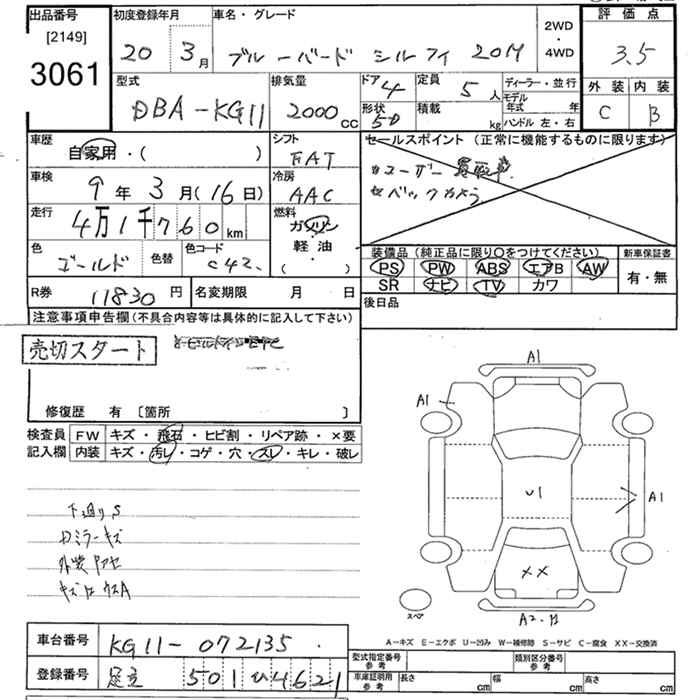 出品番号 初度登録年月 車名・グレード 2WD・4WD 評価点
[2149]
3061
20 3月 ブルーバード シルフィ 20M 3.5
型式 排気量 ドア 4 定員 5人 ディーラー・並行 外装 内装
DBA-KG11 2000cc 形状 5D 積載 kg モデル年式 年 C B
ハンドル 左・右
車歴 シフト セールスポイント (正常に機能するものに限ります)
自家用・( ) FAT
車検 冷房
9年 3月(16日) AAC
走行 燃料
4万1千760km ガソリン
軽油
( )
色 色替 色コード
ゴールド C42
装備品 (純正品に限り○をつけてください) 新車保証書
PS PW ABS エアB AW 有・無
SR ナビ TV カワ
R券 11830円 名変期限 月 日 後日品
注意事項申告欄(不具合内容等は具体的に記入して下さい)
売切スタート
修復歴 有 [箇所 ]
検査員 FW キズ・飛石・ヒビ割・リペア跡・×要
記入欄 内装 キズ・汚レ・コゲ・穴・スレ・キレ・破レ
下廻りS
ミラーキズ
外装
A1
A1
U1
A1
XX
スペア
A-キズ E-エクボ U-凹み W-補修跡 S-サビ C-腐食 XX-交換済
車台番号 KG11-072135
登録番号 足立 501 4621
型式指定番号 参考 類別区分番号 参考
車庫証明用 参考 長さ cm 幅 cm 高さ cm